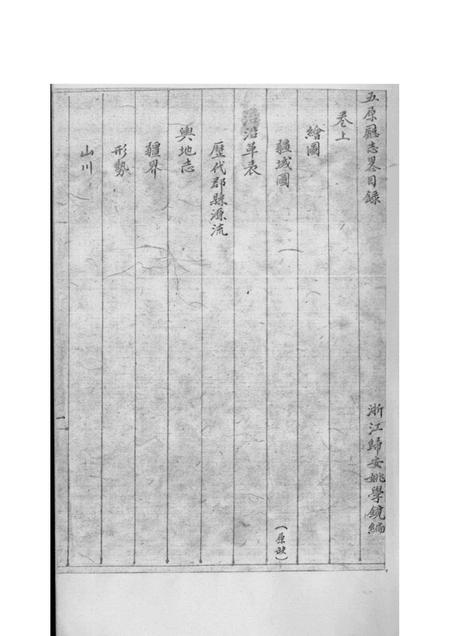 五原廳志畧目錄 浙江歸安姚學鏡編
卷上
繪圖
疆域圖 (原缺)
沿革表
歷代郡縣源流
輿地志
疆界
形勢
山川